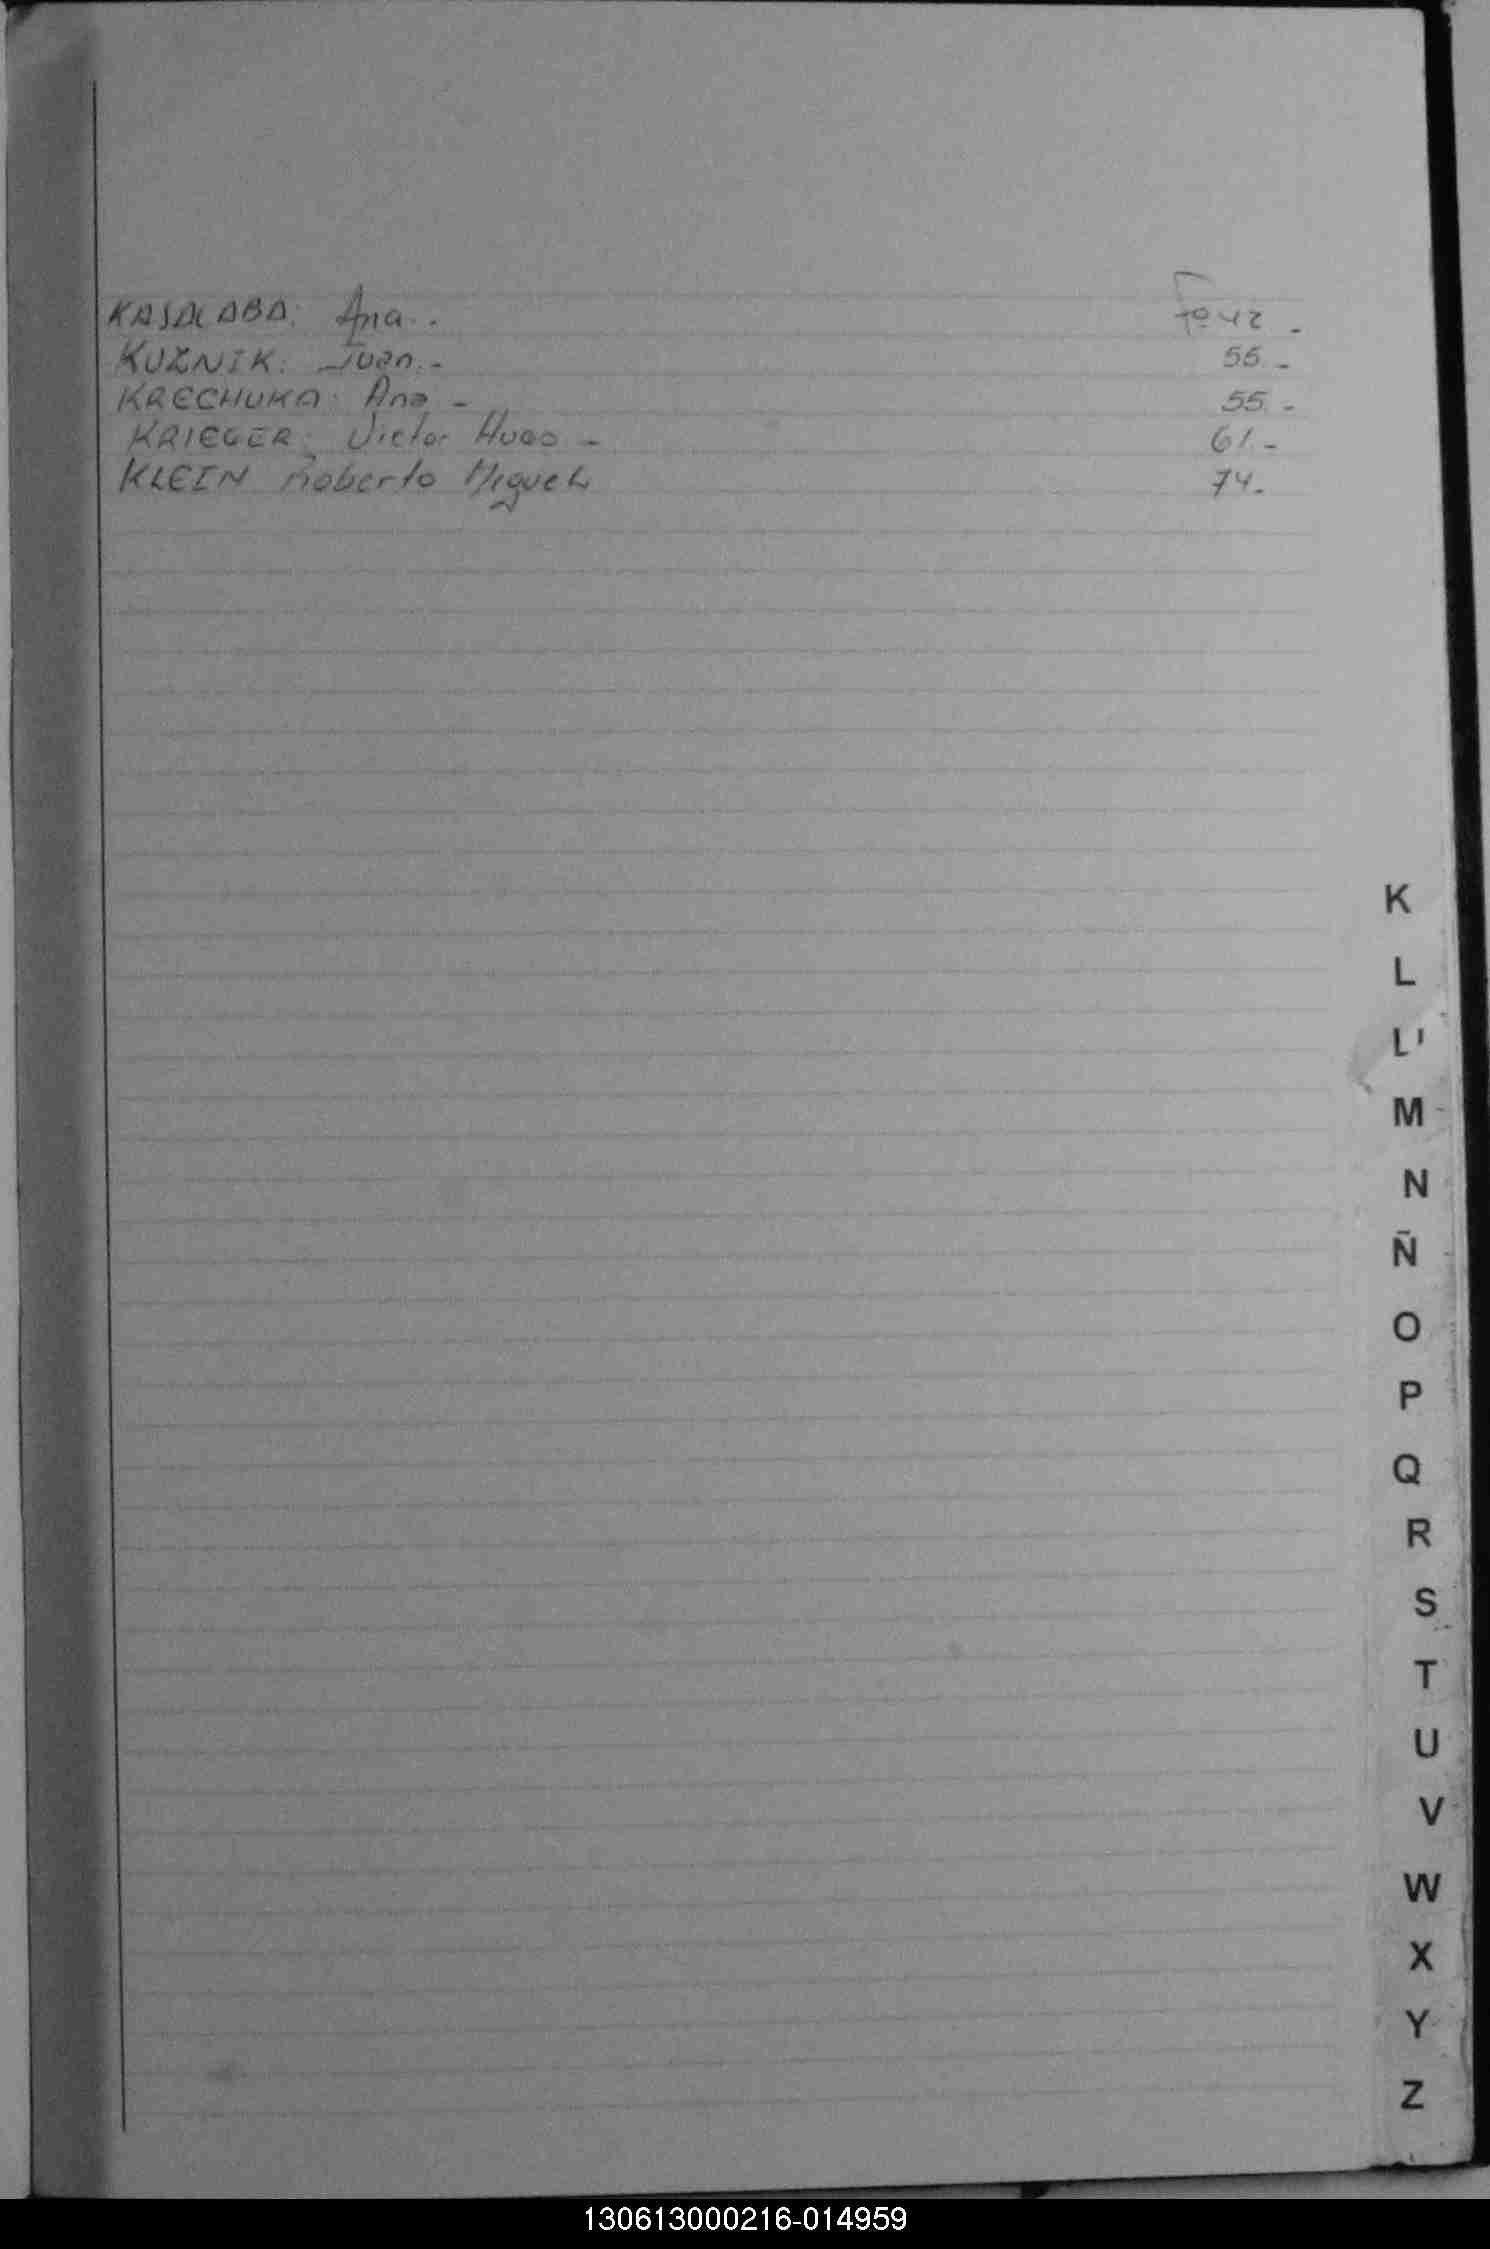 KASALABA: Ana. . Fº 42 -
KUZNIK: Juan. - 55. -
KRECHUKA: Ana - 55. -
KRIEGER: Victor Hugo - 61. -
KLEIN Roberto Miguel 74. -
K
L
Ll
M
N
Ñ
O
P
Q
R
S
T
U
V
W
X
Y
Z
130613000216-014959